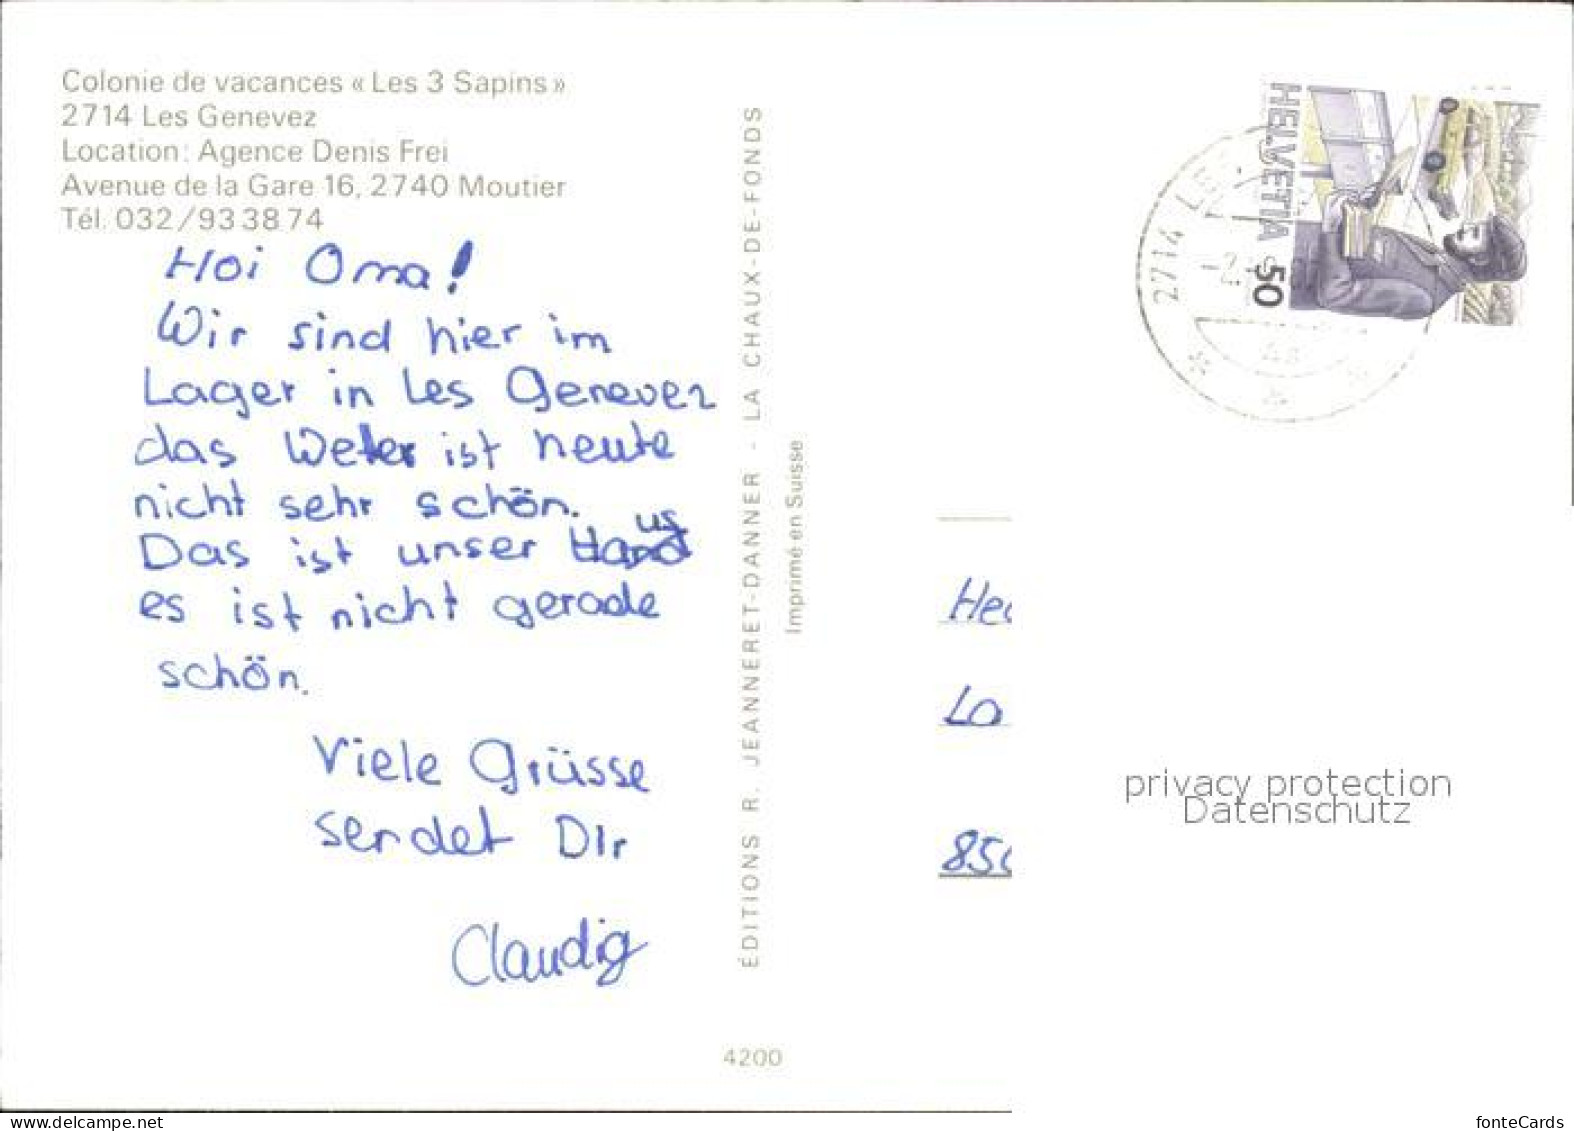 Colonie de vacances « Les 3 Sapins »
2714 Les Genevez
Location: Agence Denis Frei
Avenue de la Gare 16, 2740 Moutier
Tél. 032/93 38 74
Hoi Oma!
Wir sind hier im
Lager in Les Genevez
das Wetter ist heute
nicht sehr schön.
Das ist unser Haus
es ist nicht gerade
schön.
Viele Grüsse
sendet Dir
ÉDITIONS R. JEANNERET-DANNER - LA CHAUX-DE-FONDS
Imprimé en Suisse
4200
HELVETIA 50
2714
La
privacy protection
Datenschutz
www.delcampe.net
fonteCards